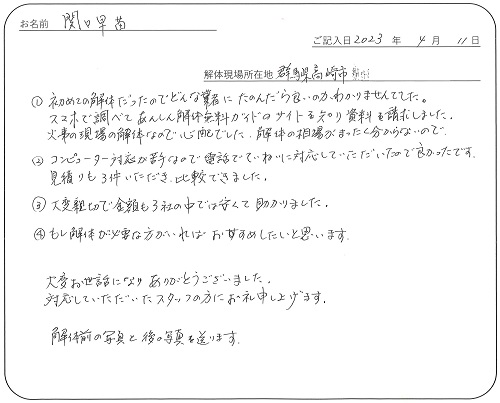 お名前 関口早苗
ご記入日 2023 年 4 月 11 日
解体現場所在地 群馬県高崎市
① 初めての解体だったのでどんな業者にたのんだら良いのかわかりませんでした。
スマホで調べてあんしん解体無料ガイドのサイトを知り資料を請求しました。
火事の現場の解体なので心配でした。解体の相場がまったく分からないので。
② コンピューター対応が苦手なので電話でていねいに対応していただいたので良かったです。
見積りも3件いただき、比較できました。
③ 大変親切で金額も3社の中では安くて助かりました。
④ もし解体が必要な方がいればおすすめしたいと思います。
大変お世話になりありがとうございました。
対応していただいたスタッフの方にお礼申し上げます。
解体前の写真と後の写真を送ります。